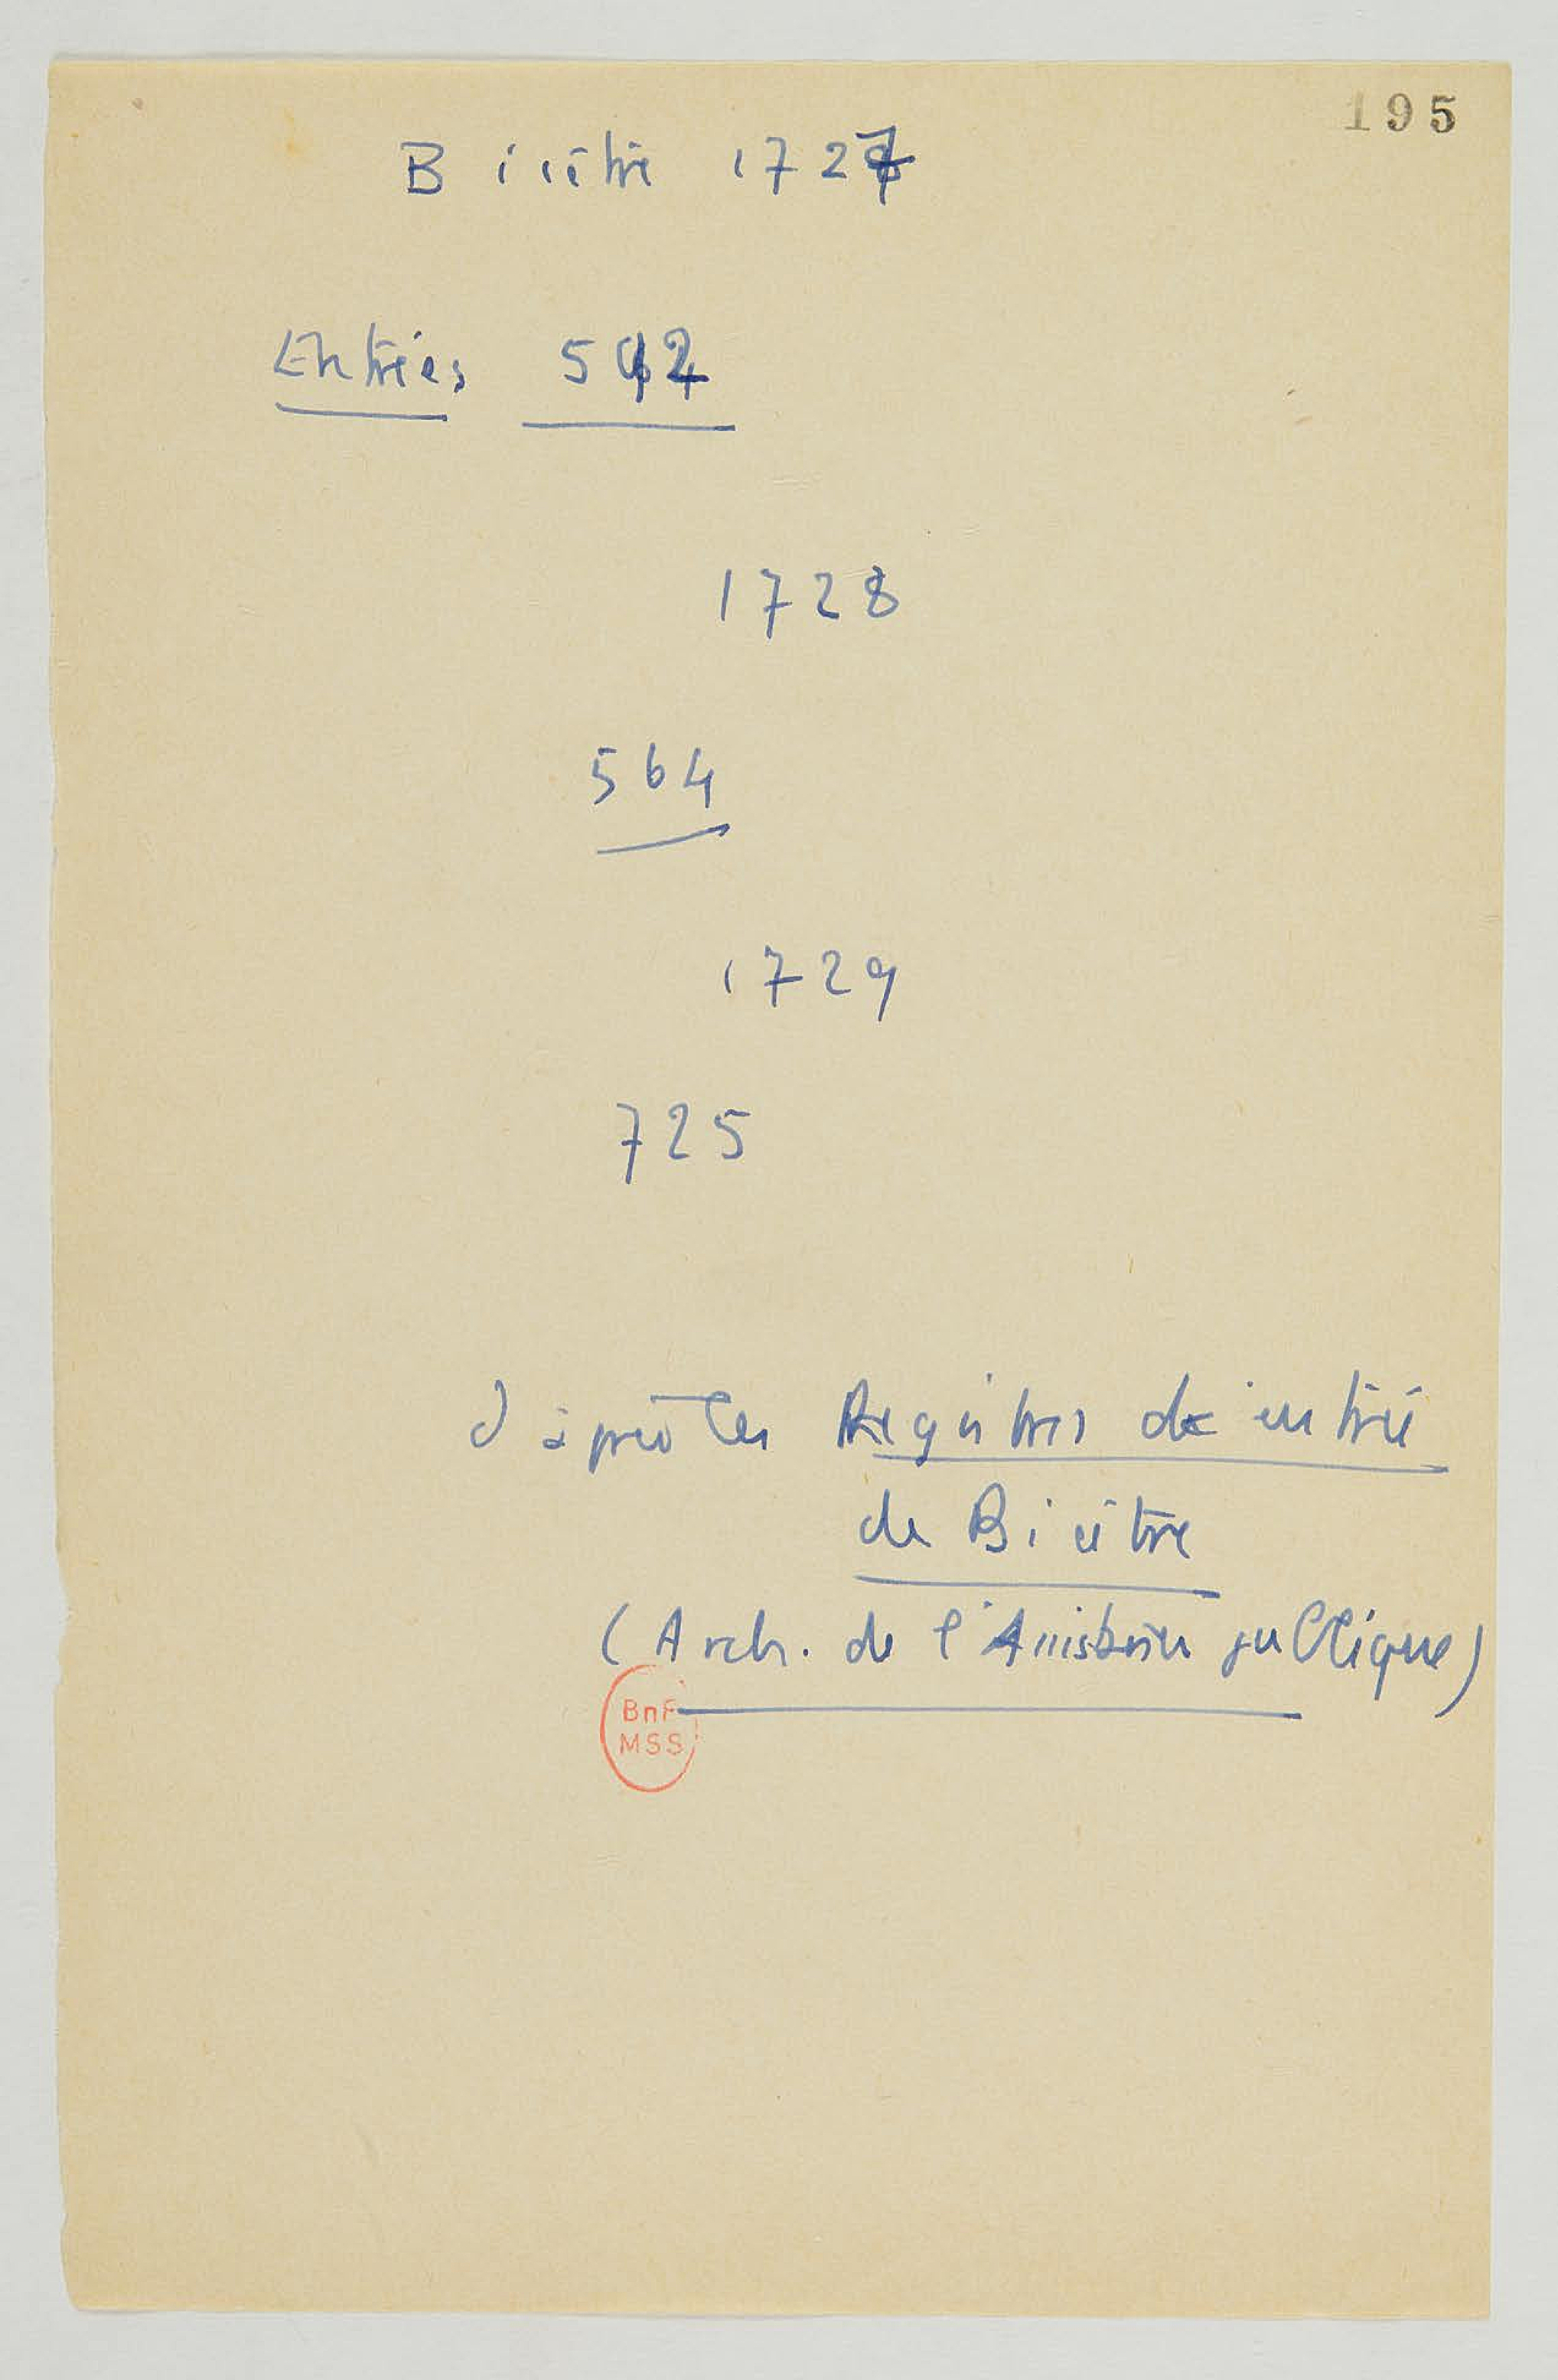 195
Bicêtre 1727
Entrées
1728
564
1729
725
d'après les Registres d'entrée
de Bicêtre
(Arch. de l'Assistance publique)
BnF
MSS